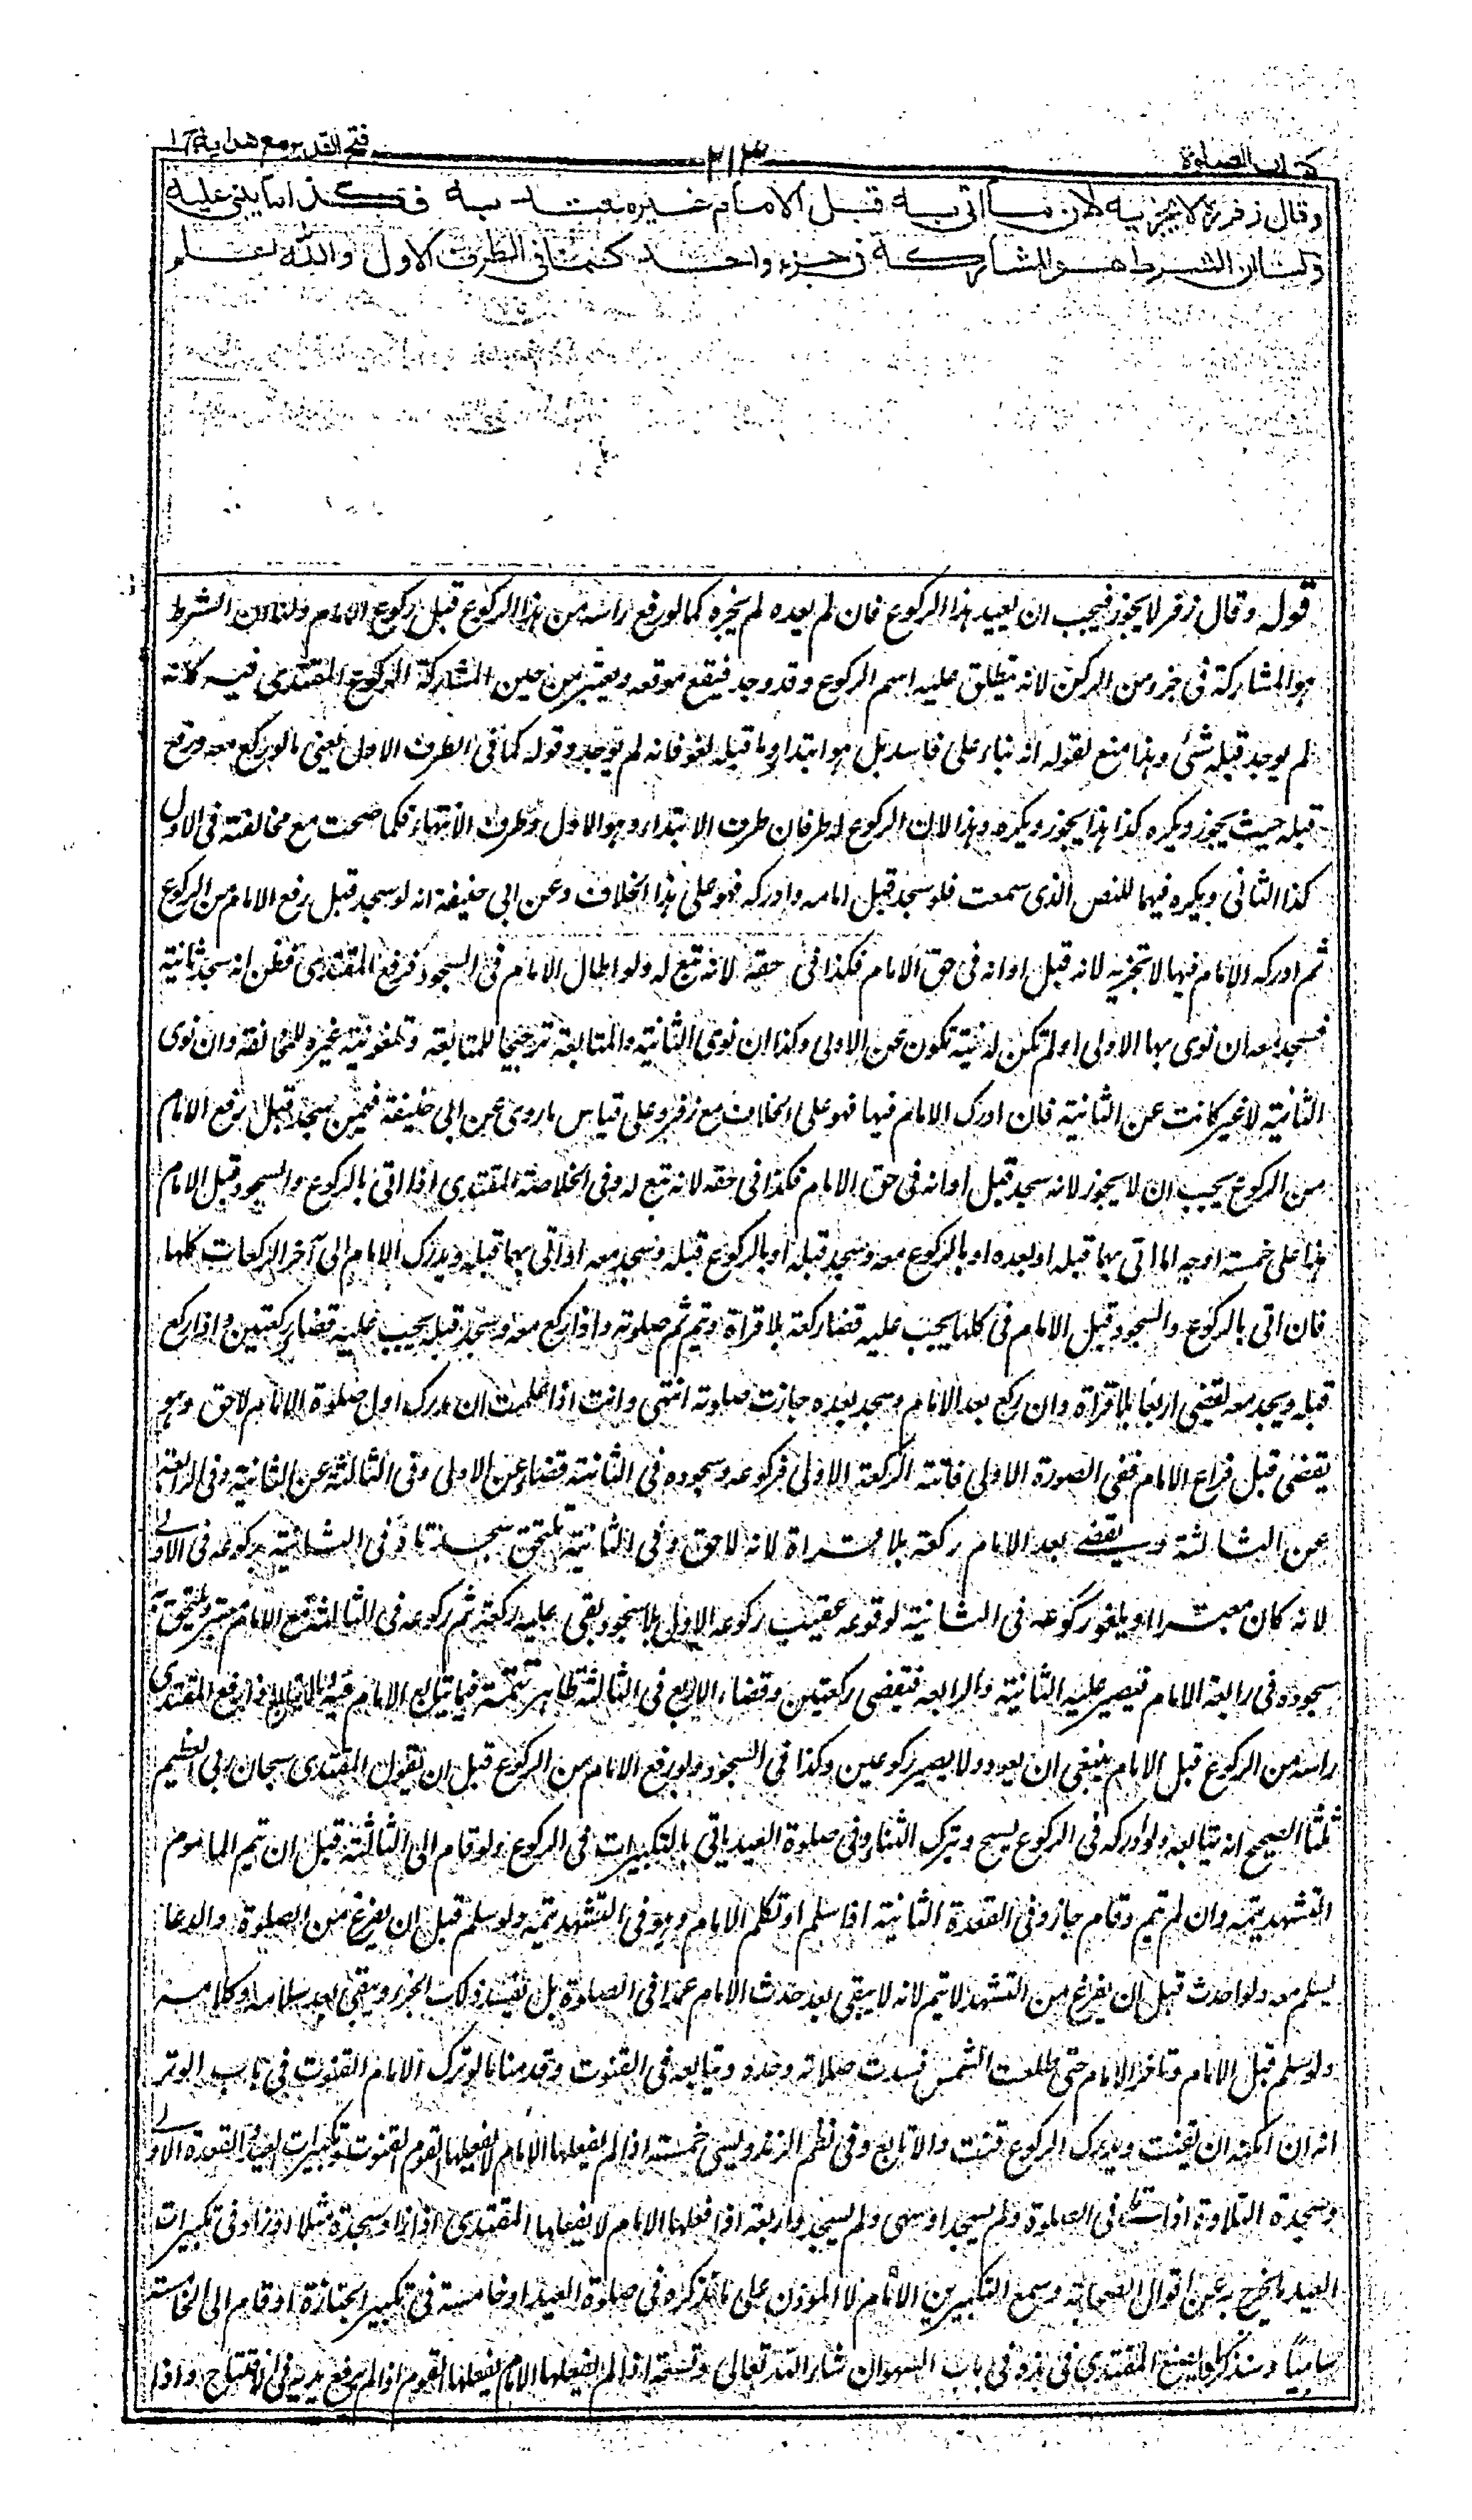 كتاب الصلوة
٢١٣
فتح القدير مع هدايه ج١
وقال زفر رح لا يجزيه لان ما اتى به قبل الامام غير معتد به فكذا ما يبنى عليه
ولنا ان الشرط هو المشاركة فى جزء واحد كما فى الطرف الاول والله اعلم
قوله وقال زفر لا يجوز فيجب ان يعيد هذا الركوع فان لم يعده لم يجزه كما لو رفع راسه من هذا الركوع قبل ركوع الامام ولنا ان الشرط
هو المشاركة فى جزء من الركن لانه ينطلق عليه اسم الركوع وقد وجد فيقع موقعه ويعتبر من حين المشاركة الركوع المقتدى فيه كانه
لم يوجد قبله شئ وهذا منع لقوله انه بناء على فاسد بل هو ابتداء وما قبله لغو فانه لم يوجد وقوله كما فى الطرف الاول يعنى ما لو ركع معه ورفع
قبله حيث يجوز ويكره كذا هذا يجوز ويكره وهذا لان الركوع له طرفان طرف الابتداء وهو الاول وطرف الانتهاء فكما صحت مع مخالفته فى الاول
كذا الثانى ويكره فيهما للنص الذى سمعت فلو سجد قبل امامه وادركه فهو على هذا الخلاف وعن ابى حنيفة انه لو سجد قبل رفع الامام من الركوع
ثم ادركه الامام فيها لا تجزيه لانه قبل اوانه فى حق الامام فكذا فى حقه لانه تبع له ولو اطال الامام فى السجود فرفع المقتدى فظن انه سجد ثانية
فسجد معه ان نوى بها الاولى او لم تكن له نية تكون عن الاولى وكذا ان نوى الثانية والمتابعة ترجيحا للمتابعة وتلغو نية غيره للمخالفة وان نوى
الثانية لا غير كانت عن الثانية فان ادرك الامام فيها فهو على الخلاف مع زفر وعلى قياس ما روى عن ابى حنيفة فيمن سجد قبل رفع الامام
من الركوع يجب ان لا يجوز لانه سجد قبل اوانه فى حق الامام فكذا فى حقه لانه تبع له وفى الخلاصة المقتدى اذا اتى بالركوع والسجود قبل الامام
هذا على خمسة اوجه اما اتى بهما قبله او بعده او بالركوع معه وسجد قبله او بالركوع قبله وسجد معه او اتى بهما قبله ويدرك الامام الى آخر الركعات كلها
فان اتى بالركوع والسجود قبل الامام فى كلها يجب عليه قضاء ركعة بلا قراة وتتم صلوته واذا ركع معه وسجد قبله يجب عليه قضاء ركعتين واذا ركع
قبله ويسجد معه يقضى اربعا بلا قراة وان ركع بعد الامام وسجد بعده جازت صلوته انتهى وانت اذا علمت ان مدرك اول صلوة الامام لاحق وهو
يقضى قبل فراغ الامام ففى الصورة الاولى فاتته الركعة الاولى فركوعه وسجوده فى الثانية قضاء عن الاولى وفى الثالثة عن الثانية وفى الرابعة
عن الثالثة ويقضى بعد الامام ركعة بلا قراة لانه لاحق وفى الثانية تلتحق سجدتاه فى الثانية بركوعه فى الاولى
لانه كان معتبرا ويلغو ركوعه فى الثانية لوقوعه عقيب ركوعه الاول بلا سجود بقى عليه ركعة ثم ركوعه فى الثالثة مع الامام معتبر ويلتحق به
سجوده فى رابعة الامام فيصير عليه الثانية والرابعة فيقضى ركعتين وقضاء الاربع فى الثالثة ظاهر تتمة فيما يتابع الامام فيه وما لا يتابع اذا رفع المقتدى
راسه من الركوع قبل الامام ينبغى ان يعود ولا يصير ركوعين وكذا فى السجود ولو رفع الامام من الركوع قبل ان يقول المقتدى سبحان ربى العظيم
ثلثا الصحيح انه يتابعه ولو ادركه فى الركوع يسبح ويترك الثناء وفى صلوة العيد ياتى بالتكبيرات فى الركوع ولو قام الى الثالثة قبل ان يتم الماموم
التشهد يتمه وان لم يتم وقام جاز وفى القعدة الثانية اذا سلم او تكلم الامام وهو فى التشهد يتمه ولو سلم قبل ان يفرغ من الصلوة والدعا
يسلم معه ولو احدث قبل ان يفرغ من التشهد لا يتم لانه لا يبقى بعد حدث الامام عمدا فى الصلوة بل تفسد ذلك الجزء ويبقى بعد سلامه او كلامه
ولو سلم قبل الامام وتاخر الامام حتى طلعت الشمس فسدت صلاته وحده ويتابعه فى القنوت وقدمنا ما لو ترك الامام القنوت فى باب الوتر
انه ان امكنه ان يقنت ويدرك الركوع قنت والا تابع وفى نظم الزندويسى خمسة اذا لم يفعلها الامام لا يفعلها القوم القنوت وتكبيرات العيد والقعدة الاولى
وسجدة التلاوة اذا تلا فى الصلوة ولم يسجد او سهى ولم يسجد واربعة اذا فعلها الامام لا يفعلها المقتدى اذا زاد سجدة مثلا او زاد فى تكبيرات
العيد ما يخرج به عن اقوال الصحابة وسمع التكبير من الامام لا المؤذن على ما نذكره فى صلوة العيد او خامسة فى تكبير الجنازة او قام الى الخامسة
ساهيا وسنذكر ما يصنع المقتدى فى هذه فى باب السهو ان شاء الله تعالى وتسعة اذا لم يفعلها الامام يفعلها القوم اذا لم يرفع يديه فى الافتتاح واذا